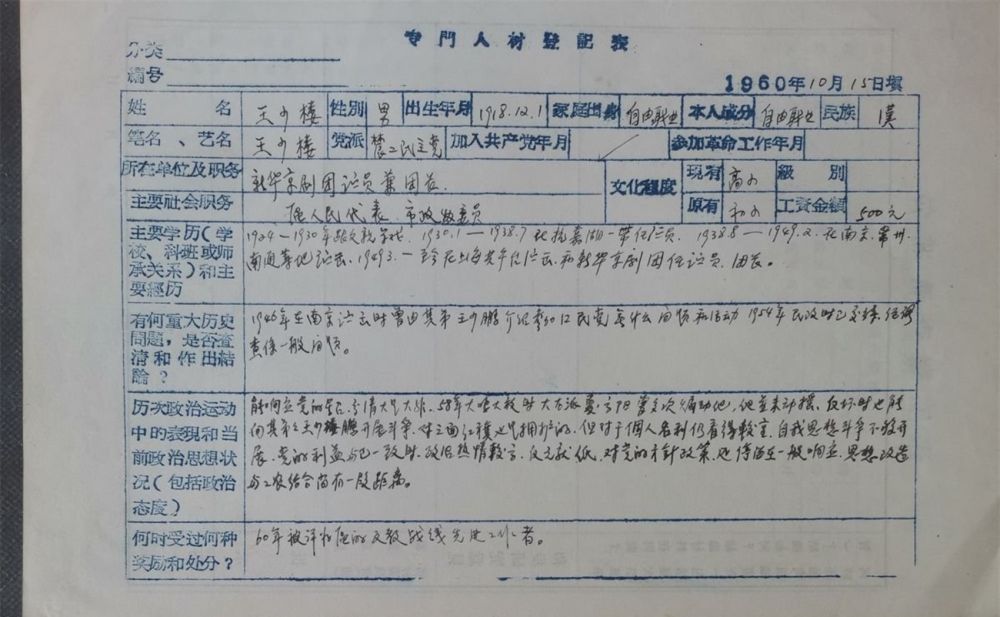 专門人材登記表
分类
編号
1960年10月15日填
姓名 王少楼 性別 男 出生年月 1918.12.1 家庭出身 自由职业 本人成分 自由职业 民族 漢
笔名、艺名 王少楼 党派 農工民主党 加入共产党年月 参加革命工作年月
所在单位及职务 新华京剧团演员兼团长 文化程度 現有 高小 級別
主要社会职务 区人民代表、市政协委员 原有 初小 工資金額 500元
主要学历(学 1924—1930年跟父親学戏. 1930.1—1938.7 在杭嘉湖一带任演员. 1938.8—1949.2. 在南京、常州、
校、科班或师 南通等地演出. 1949.3.—至今在上海 和新华京剧团任演员、团长。
承关系)和主
要經历
有何重大历史 1946年在南京演出时曾由其弟王少鹏介绍参加 民党 什么 和活动 1954年民改时已交待,
問題,是否查 查係一般 。
清和作出結
論?
历次政治运动 能响应党的号召, 58年大鸣大放时大右派 曾多次煽动他, 他並未动摇、反坏时也能
中的表現和当 向其弟王少 鹏开展斗争, 对三面红旗也是拥护的. 但对于個人名利仍看得較重, 自我思想斗争不够开
前政治思想状 展. 党的利益与己一致时, 政治热情較高, 反之就低. 对党的方針政策, 还停留在一般响应. 思想改造
况(包括政治 与工农結合尚有一段距离。
态度)
何时受过何种 60年被評为区的文教战线先进工作者。
奖励和处分?